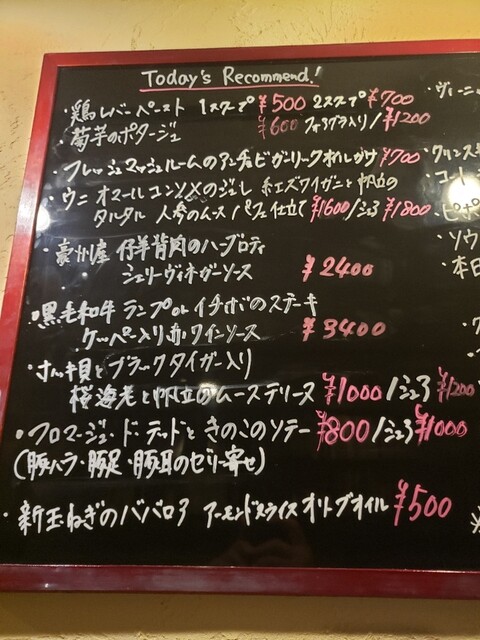 Today's Recommend!
・鶏レバーペースト 1スクープ ¥500 2スクープ ¥700
・菊芋のポタージュ ¥600 フォアグラ入り/¥1200
・フレッシュマッシュルームのアンチョビガーリックオイルがけ ¥700
・ウニ オマールコンソメのジュレ 紅ズワイガニと帆立の
タルタル 人参のムース パフェ仕立て ¥1600/シェア ¥1800
・豪州産 仔羊背肉のハーブロティ
シェリーヴィネガーソース ¥2400
・黒毛和牛 ランプorイチボのステーキ
ケッパー入り赤ワインソース ¥3400
・ホッキ貝とブラックタイガー入り
桜海老と帆立のムーステリーヌ ¥1000/シェア ¥1200
・フロマージュ・ド・テッドときのこのソテー ¥800/シェア ¥1000
(豚バラ・豚足・豚耳のゼリー寄せ)
・新玉ねぎのババロア アーモンドスライス オリーブオイル ¥500
・ヴィーニ
・クリンス
・コー
・ピポ
ソウ
本日